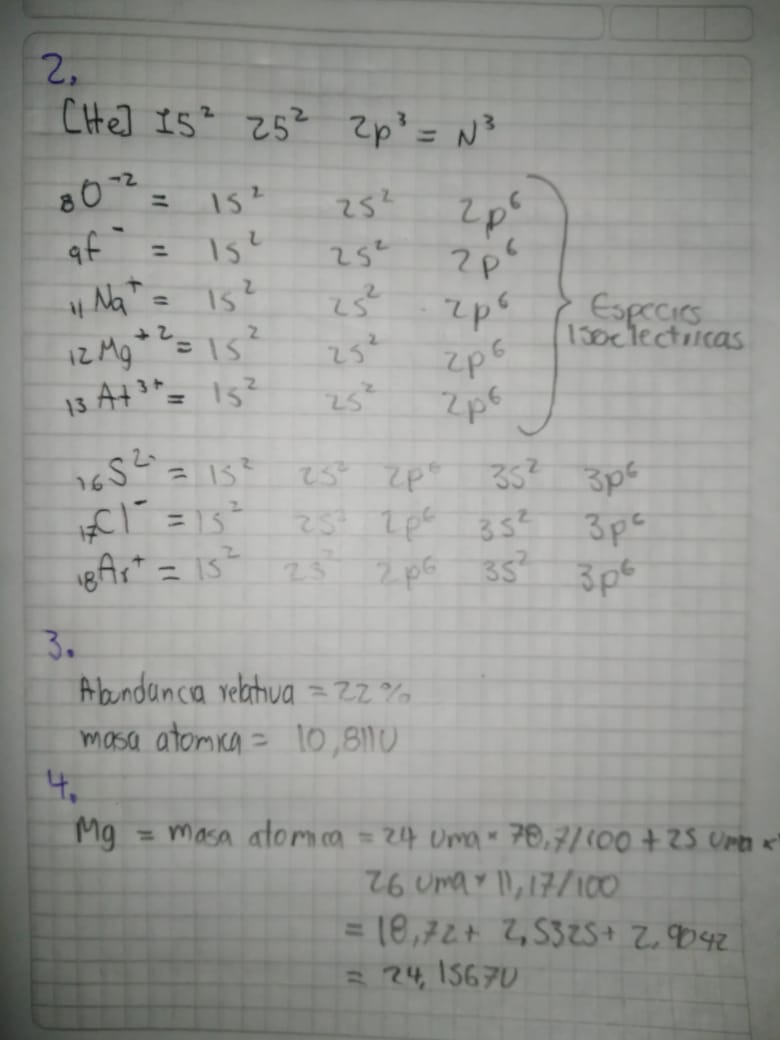 2.
[He] 1s² 2s² 2p³ = N³
₈O⁻² = 1s² 2s² 2p⁶
₉f⁻ = 1s² 2s² 2p⁶
₁₁Na⁺ = 1s² 2s² 2p⁶
₁₂Mg⁺² = 1s² 2s² 2p⁶
₁₃At³⁺ = 1s² 2s² 2p⁶
Especies
Isoelectricas
₁₆S²⁻ = 1s² 2s² 2p⁶ 3s² 3p⁶
₁₇Cl⁻ = 1s² 2s² 2p⁶ 3s² 3p⁶
₁₈Ar⁺ = 1s² 2s² 2p⁶ 3s² 3p⁶
3.
Abundancia relativa = 22%
masa atomica = 10,811U
4.
Mg = masa atomica = 24 uma × 78,7/100 + 25 uma ×
26 uma × 11,17/100
= 18,72 + 2,5325 + 2,9042
= 24,1567U